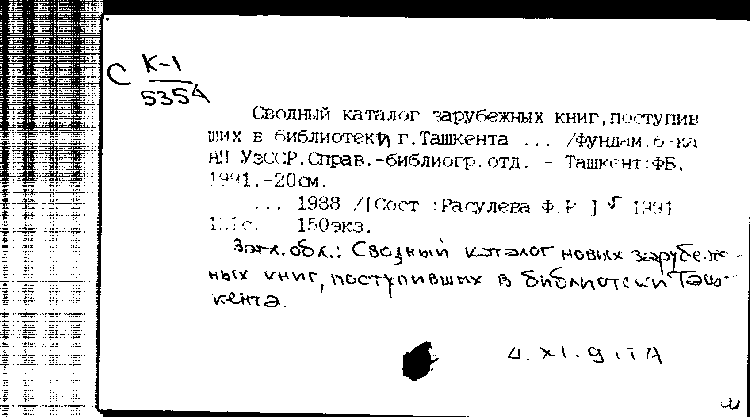 С К-1
5354
Сводный каталог зарубежных книг, поступив
ших в библиотеки г.Ташкента ... /Фундам.б-ка
АН УзССР.Справ.-библиогр.отд. - Ташкент:ФБ,
1991.-20см.
... 1988 /[Сост :Расулева Ф.Р ] 1991
150экз.
Загл. обл.: Сводный каталог новых зарубеж-
ных книг, поступивших в библиотеки Таш-
кента.